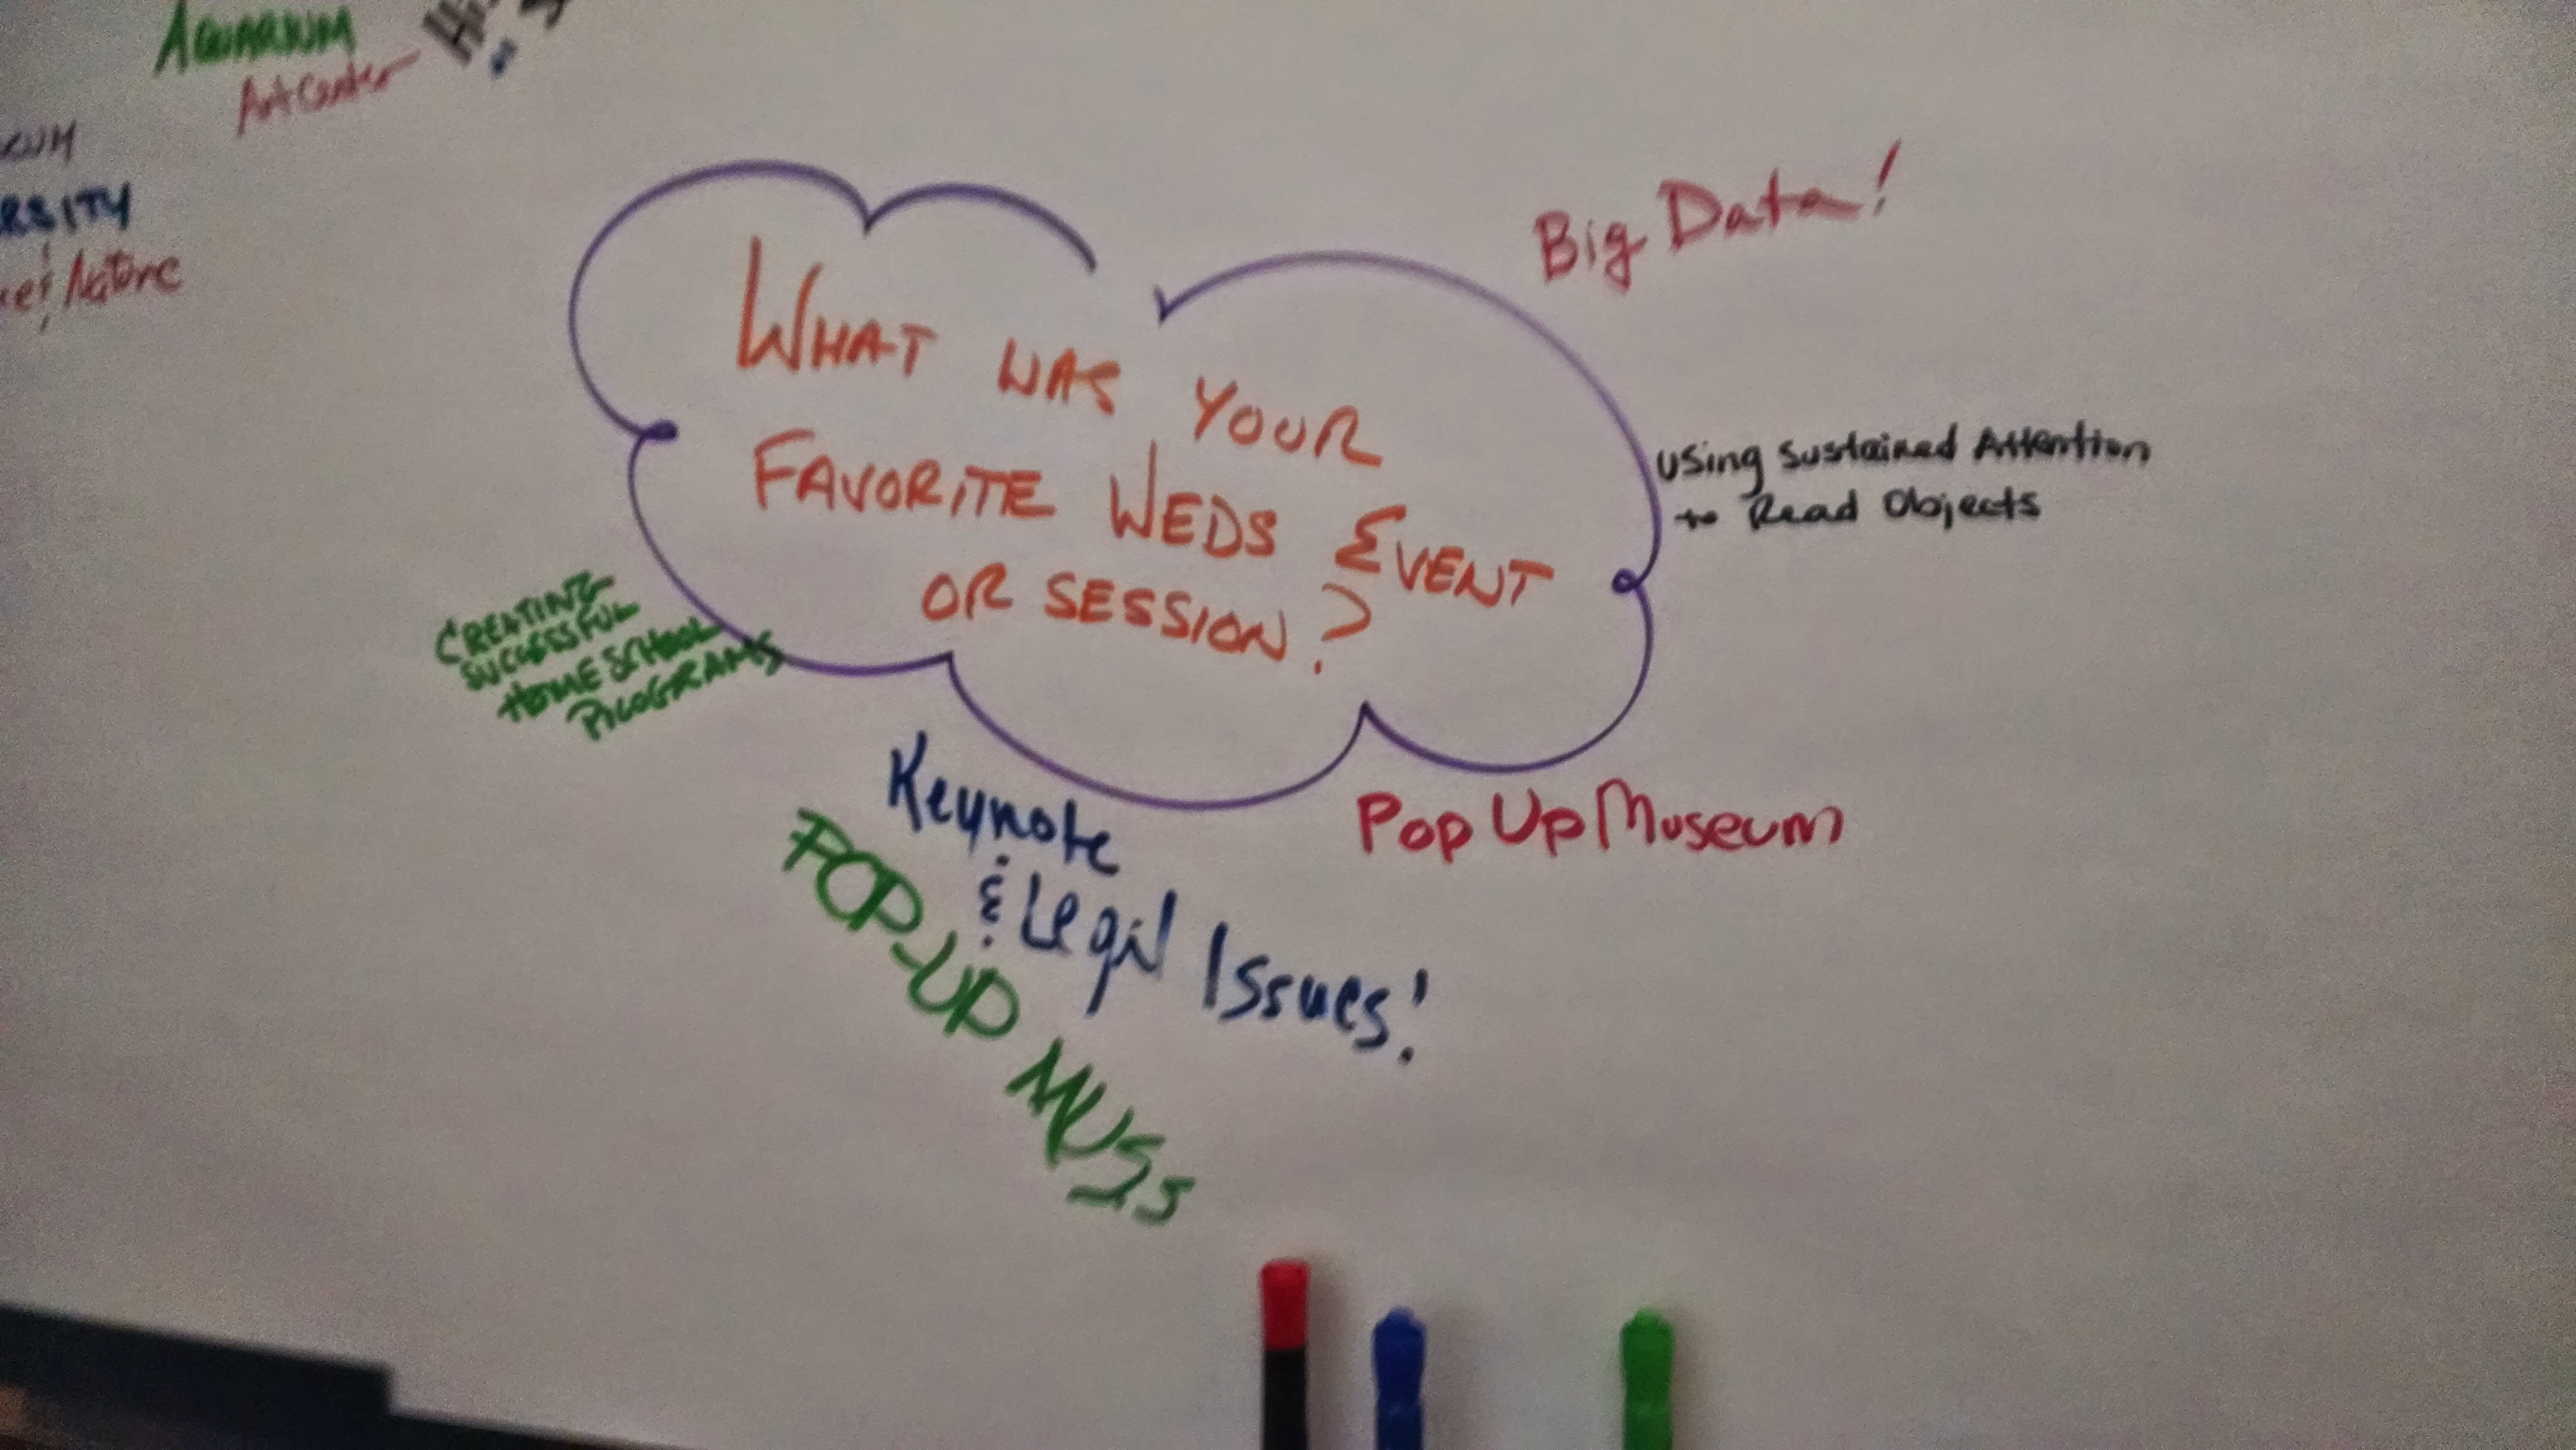 AQUARIUM
Art Center
RSITY
Nature
Big Data!
WHAT WAS YOUR
FAVORITE WEDS EVENT
OR SESSION?
Using Sustained Attention
to Read Objects
CREATING
SUCCESSFUL
HOME SCHOOL
PROGRAMS
Keynote
& Legal Issues!
Pop Up Museum
POP-UP MUSS